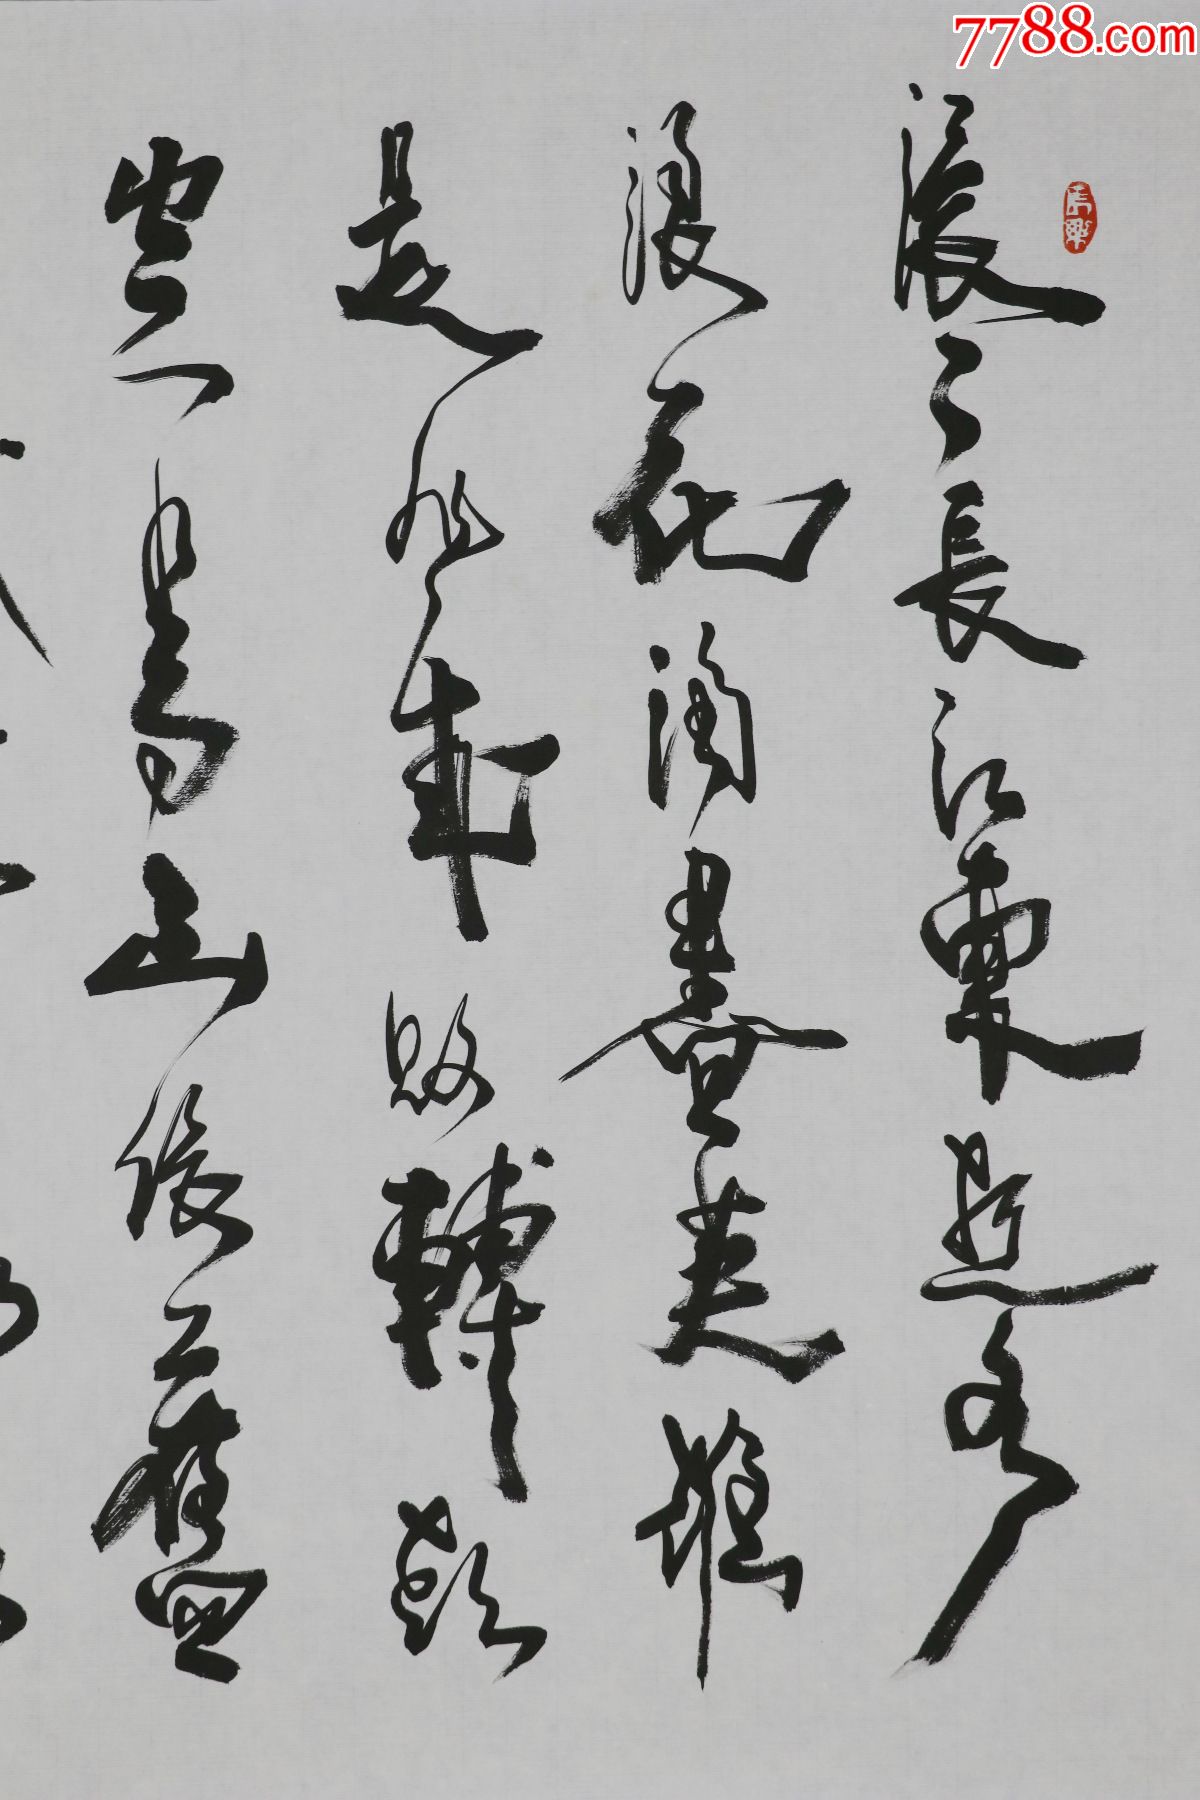 7788.com
滾々長江東逝水
浪花淘盡英雄
是非成敗轉頭
空青山依舊